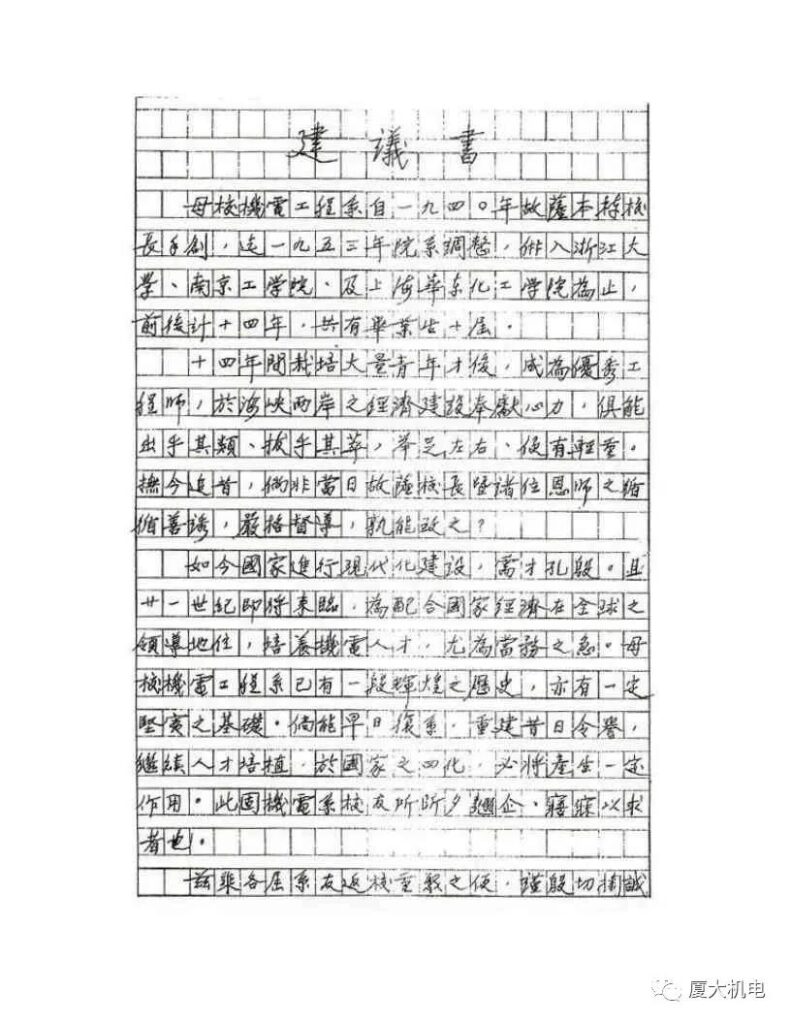 建議書
母校機電工程系自一九四〇年故薩本棟校
長手創，迄一九五三年院系調整，併入浙江大
學、南京工學院、及上海華東化工學院為止，
前後計十四年，共有畢業生十屆。
十四年間栽培大量青年才俊，成為優秀工
程師，於海峽兩岸之經濟建設奉獻心力，俱能
出乎其類、拔乎其萃，舉足左右、便有輕重。
撫今追昔，倘非當日故薩校長暨諸位恩師之循
循善誘，嚴格督導，孰能致之？
如今國家進行現代化建設，需才孔殷。且
廿一世紀即將來臨，為配合國家經濟在全球之
領導地位，培養機電人才，尤為當務之急。母
校機電工程系已有一段輝煌之歷史，亦有一定
堅實之基礎。倘能早日復系，重建昔日令譽，
繼續人才培植，於國家之四化，必將產生一定
作用。此固機電系校友所昕夕翹企、寤寐以求
者也。
茲乘各屆系友返校重聚之便，謹殷切摛誠
厦大机电